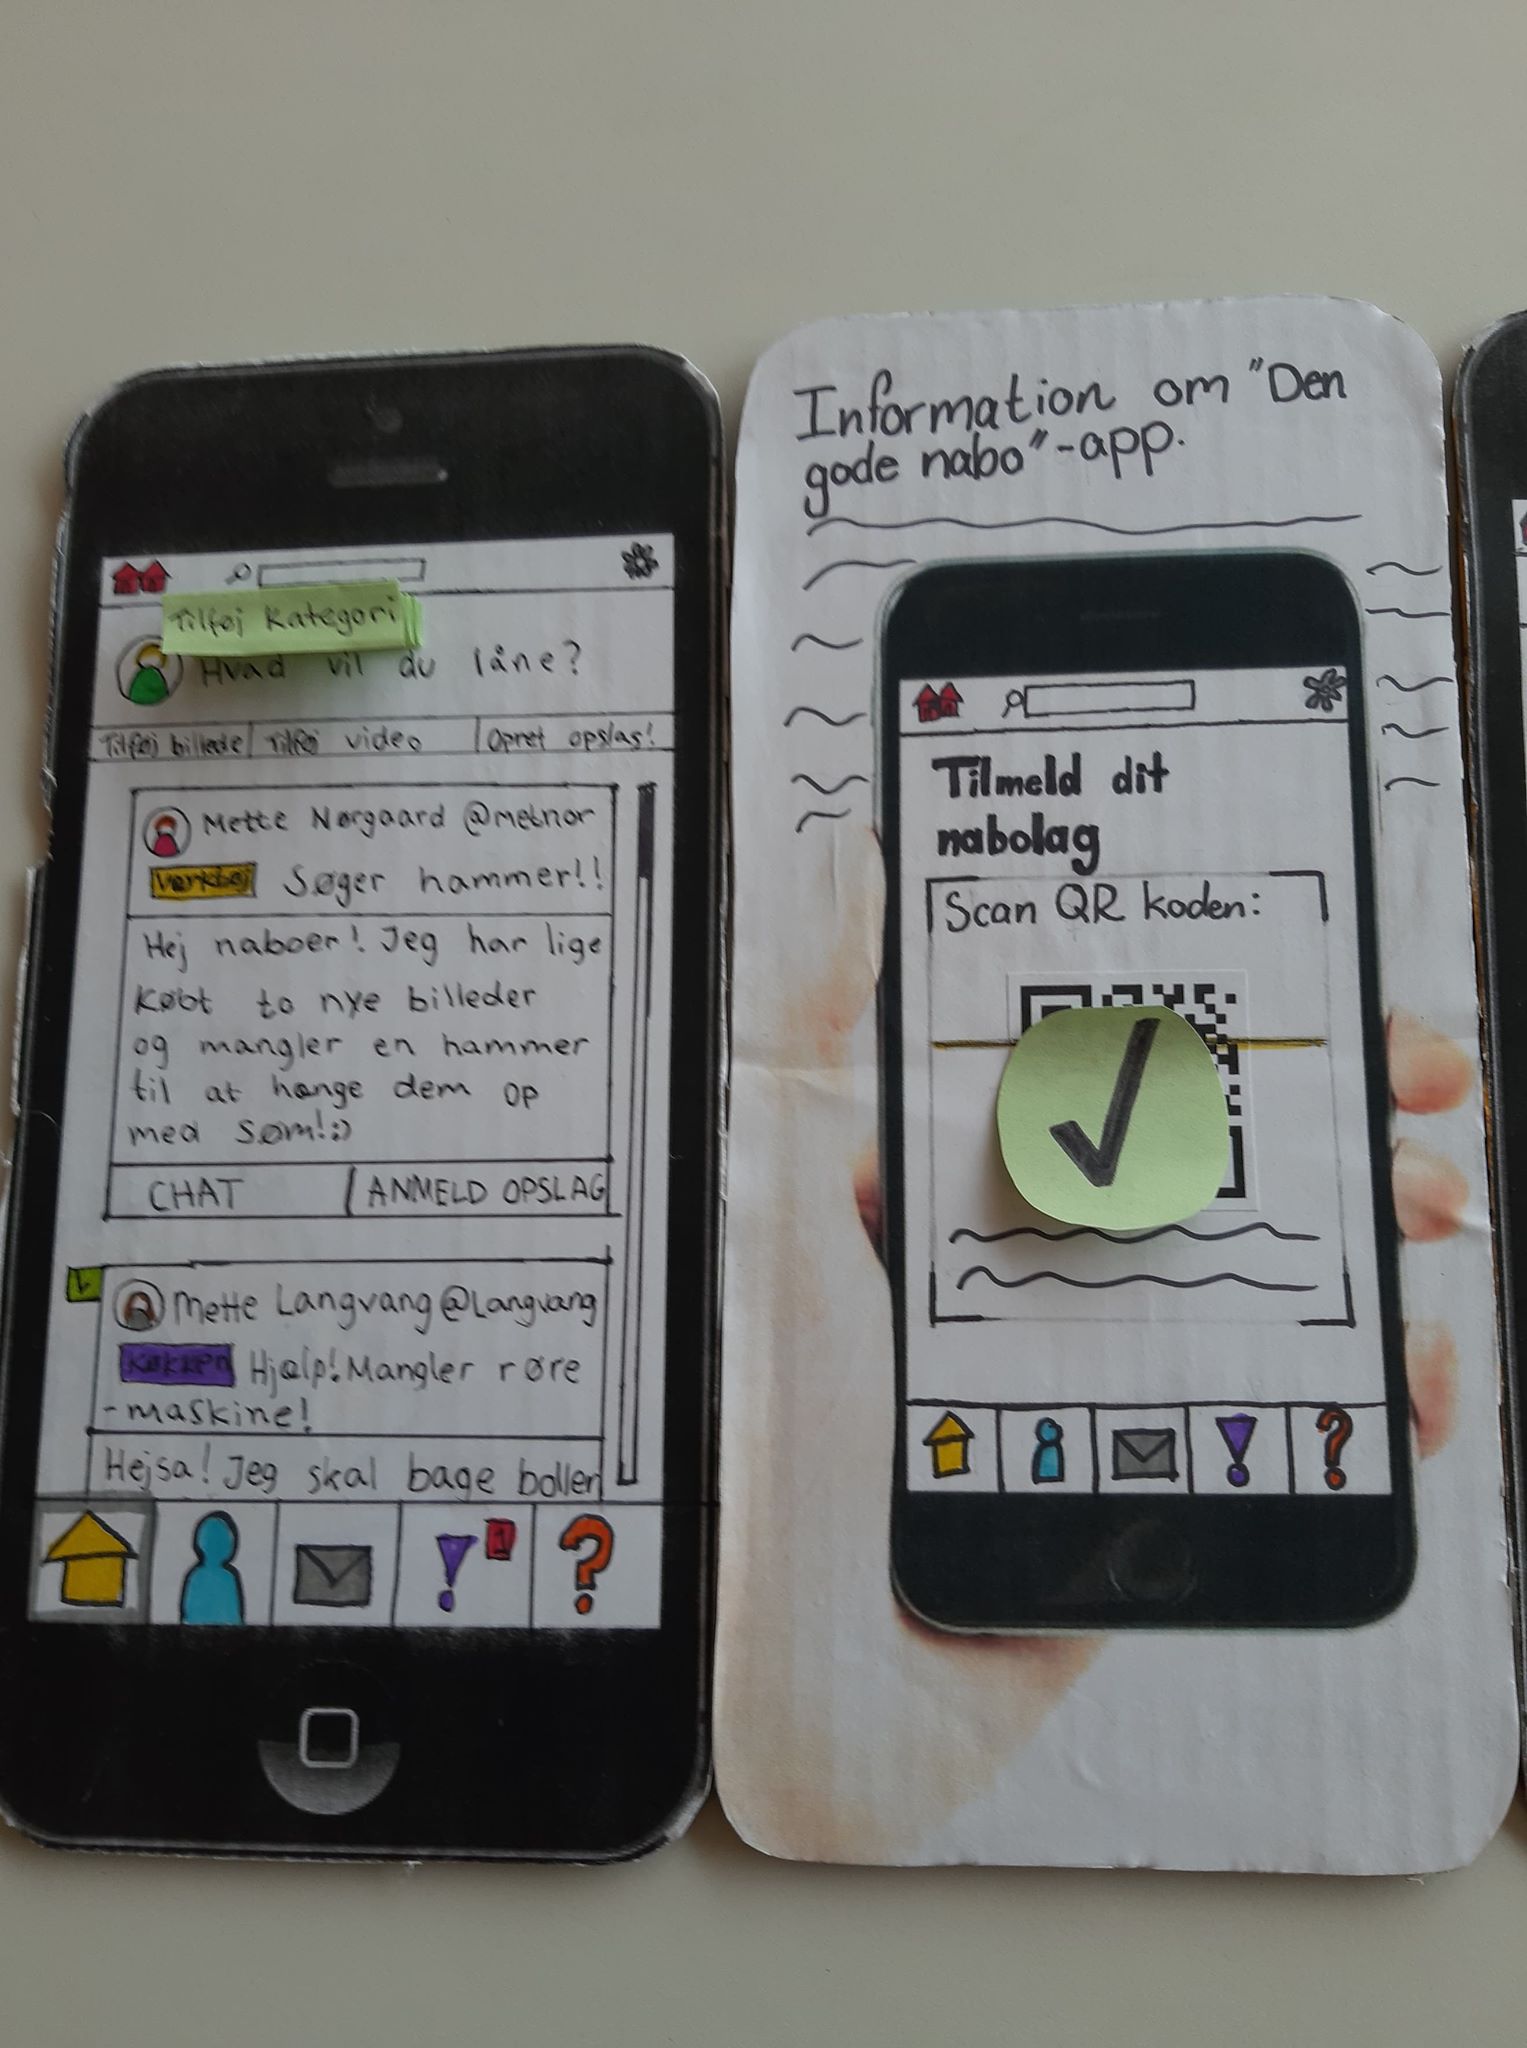 Tilføj kategori
Hvad vil du låne?
Tilføj billede Tilføj video Opret opslag!
Mette Nørgaard @metnor
Værktøj Søger hammer!!
Hej naboer! Jeg har lige
købt to nye billeder
og mangler en hammer
til at hænge dem op
med søm!:)
CHAT ANMELD OPSLAG
Mette Langvang @Langvang
Køkken Hjælp! Mangler røre
-maskine!
Hejsa! Jeg skal bage boller
1
Information om "Den
gode nabo"-app.
Tilmeld dit
nabolag
Scan QR koden: